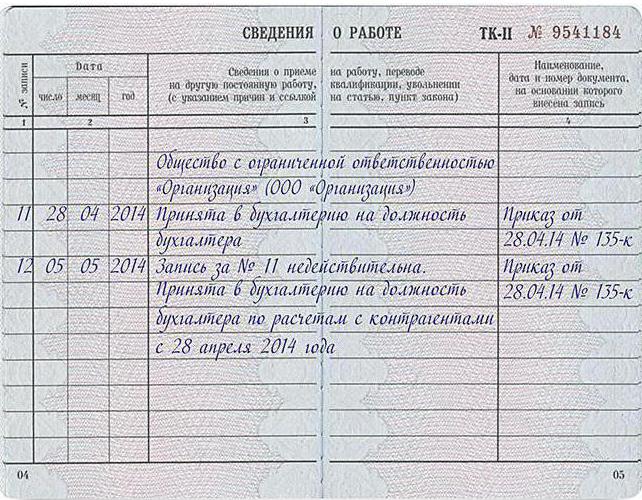 СВЕДЕНИЯ О РАБОТЕ ТК-II № 9541184
№ записи
Дата
число месяц год
Сведения о приеме на работу, переводе
на другую постоянную работу, квалификации, увольнении
(с указанием причин и ссылкой на статью, пункт закона)
Наименование,
дата и номер документа,
на основании которого
внесена запись
1 2 3 4
Общество с ограниченной ответственностью
«Организация» (ООО «Организация»)
11 28 04 2014 Принята в бухгалтерию на должность Приказ от
бухгалтера 28.04.14 № 135-к
12 05 05 2014 Запись за № 11 недействительна. Приказ от
Принята в бухгалтерию на должность 28.04.14 № 135-к
бухгалтера по расчетам с контрагентами
с 28 апреля 2014 года
04 05